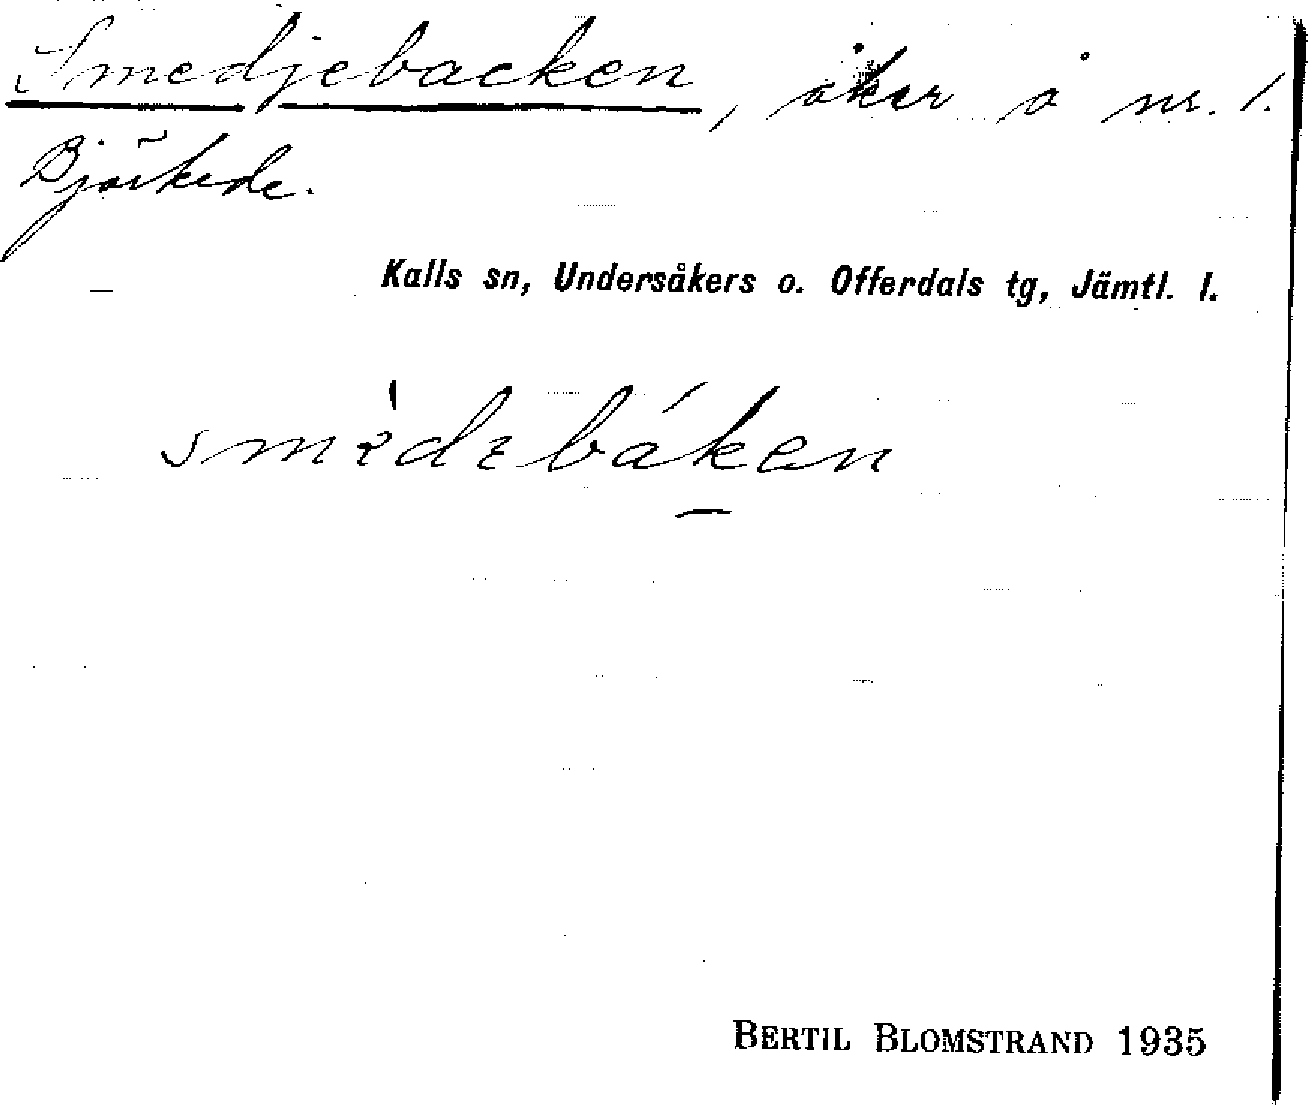 Smedjebacken, åker å nr. 1.
Björkede.
Kalls sn, Undersåkers o. Offerdals tg, Jämtl. l.
BERTIL BLOMSTRAND 1935